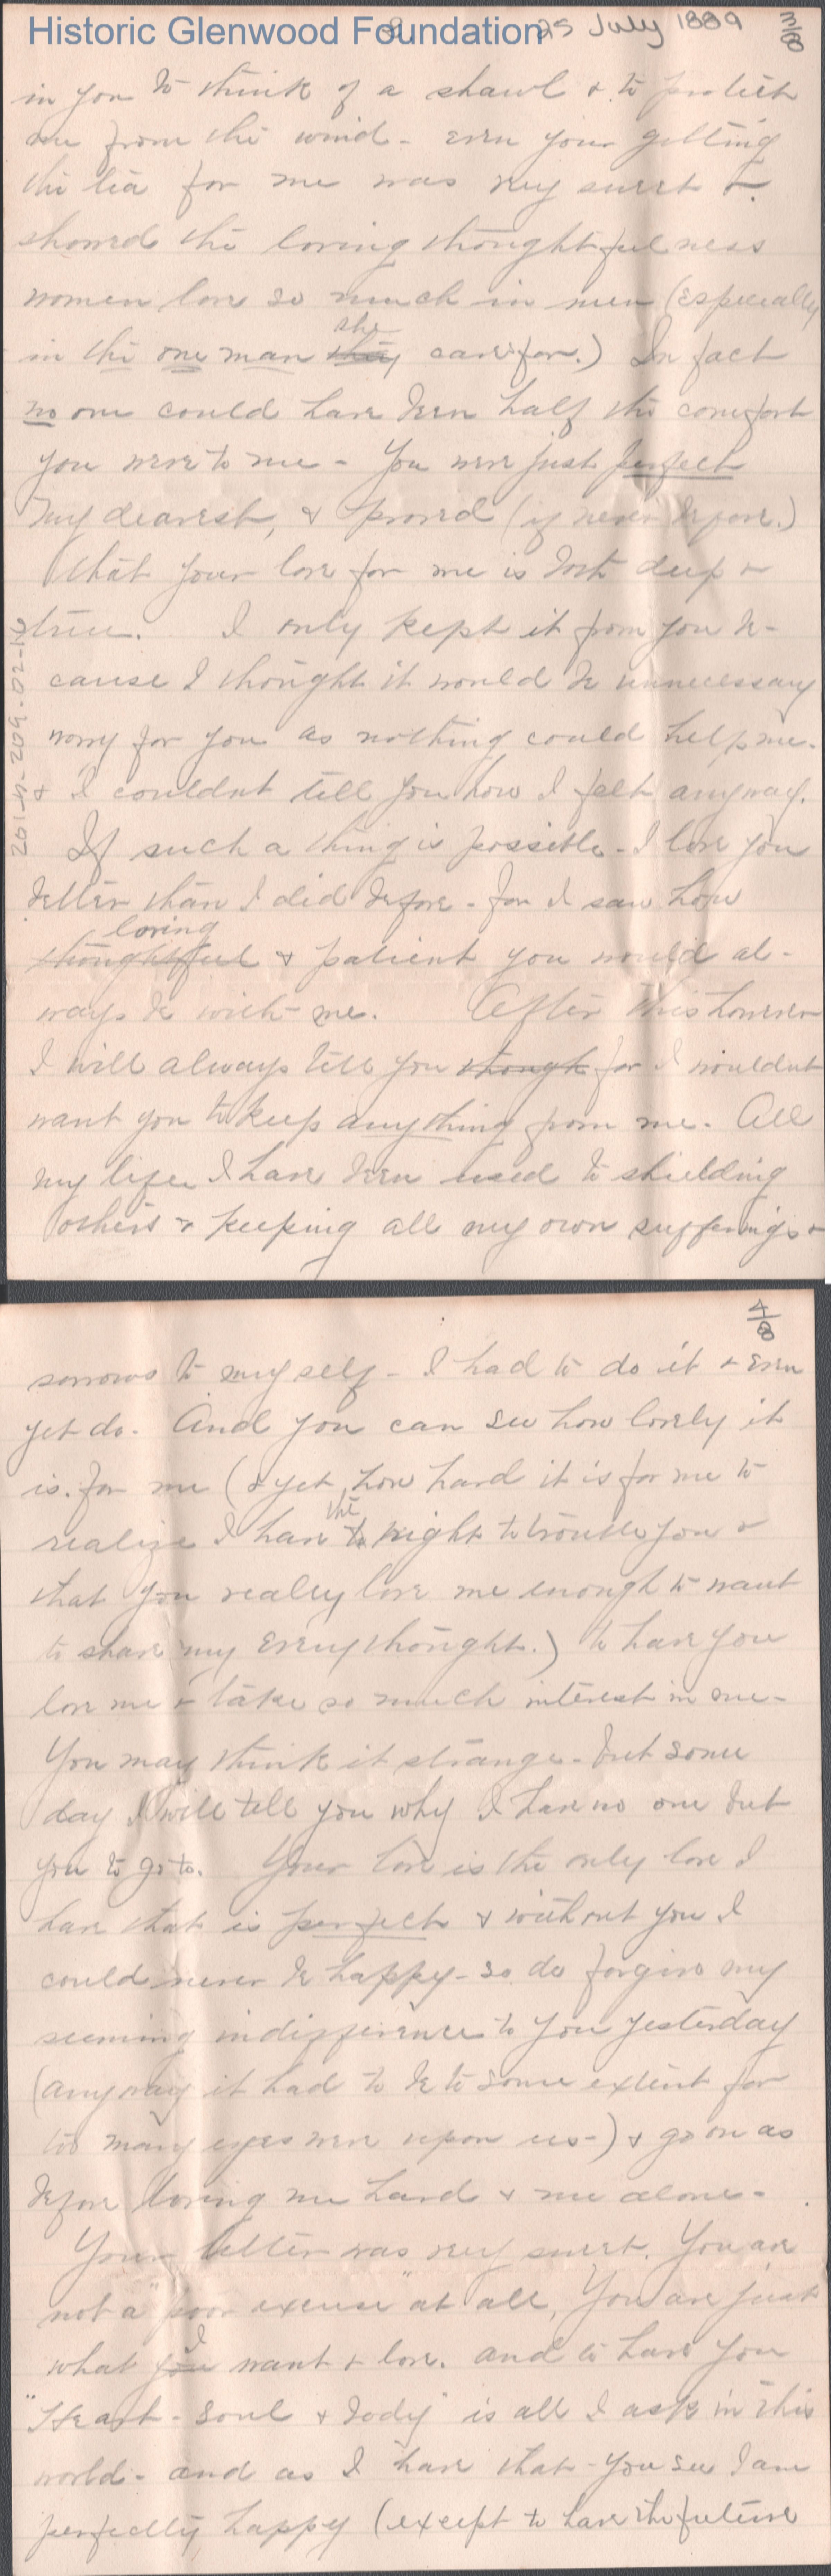 Historic Glenwood Foundation
25 July 1889
3/8
in you to think of a shawl & to protect
me from the wind - even your getting
the tea for me was very sweet &
showed the loving thoughtfulness
women love so much in men (especially
she
in the one man they care for.) In fact
no one could have been half the comfort
you were to me - You were just perfect
my dearest, & proved (if never before.)
that your love for me is both deep &
true. I only kept it from you be-
cause I thought it would be unnecessary
worry for you as nothing could help me.
& I couldnt tell you how I felt anyway.
If such a thing is possible - I love you
better than I did before - for I saw how
loving
thoughtful & patient you would al-
ways be with me. After this however
I will always tell you though for I wouldnt
want you to keep anything from me. All
my life I have been used to shielding
others & keeping all my own sufferings &
4/8
sorrows to myself - I had to do it & even
yet do. And you can see how lovely it
is for me (& yet how hard it is for me to
the
realize I have to right to trouble you &
that you really love me enough to want
to share my every thought.) to have you
love me & take so much interest in me -
You may think it strange - but some
day I will tell you why I have no one but
you to go to. Your love is the only love I
have that is perfect & without you I
could never be happy - so do forgive my
seeming indifference to you yesterday
(anyway it had to be to some extent for
too many eyes were upon us -) & go on as
before loving me hard & me alone -
Your letter was very sweet. You are
not a "poor excuse" at all, You are just
I
what you want & love. and to have you
"Heart - soul & body" is all I ask in this
world - and as I have that - you see I am
perfectly happy (except to have the future